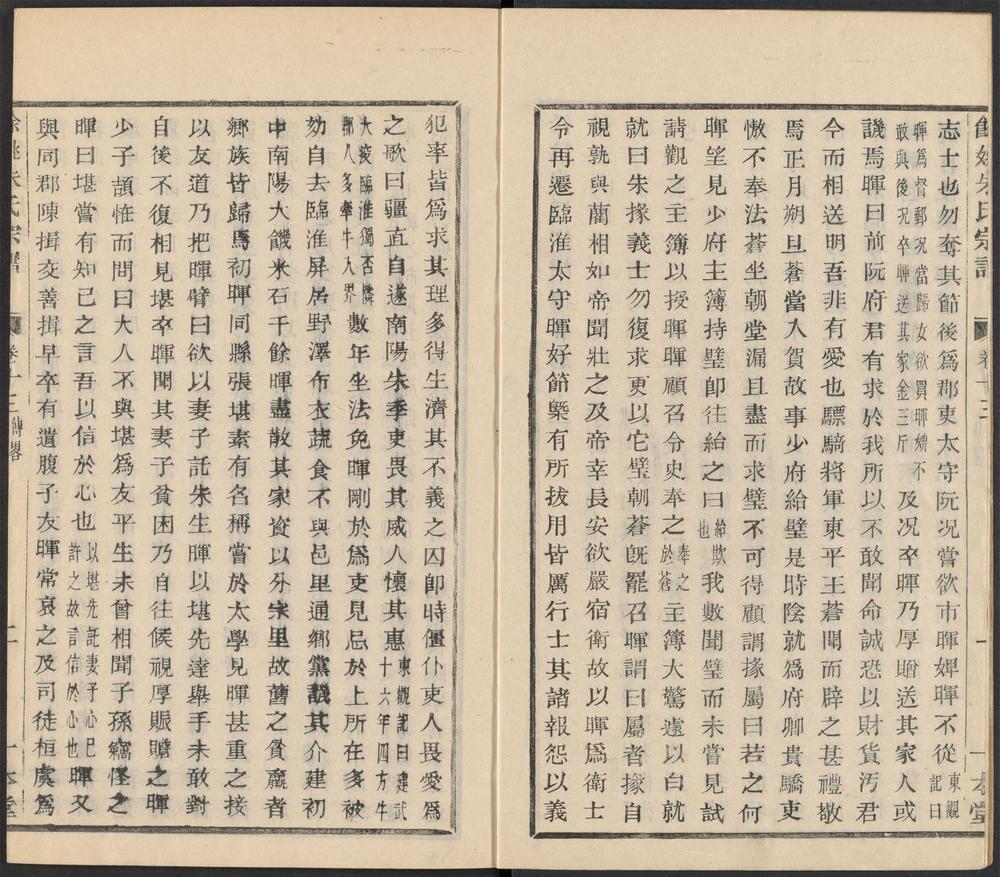 餘姚朱氏宗譜 卷十三 一 一本堂
志士也勿奪其節後爲郡吏太守阮况嘗欲市暉婢暉不從東觀記曰
暉爲督郵况當歸女欲買暉婢不敢與後况卒暉送其家金三斤及况卒暉乃厚贈送其家人或
譏焉暉曰前阮府君有求於我所以不敢聞命誠恐以財貨汚君
今而相送明吾非有愛也驃騎將軍東平王蒼聞而辟之甚禮敬
焉正月朔旦蒼當入賀故事少府給璧是時陰就爲府卿貴驕吏
慠不奉法蒼坐朝堂漏且盡而求璧不可得顧謂掾屬曰若之何
暉望見少府主簿持璧卽往紿之曰紿欺也我數聞璧而未嘗見試
請觀之主簿以授暉暉顧召令史奉之奉之於蒼主簿大驚遽以白就
就曰朱掾義士勿復求更以它璧朝蒼旣罷召暉謂曰屬者掾自
視孰與藺相如帝聞壯之及帝幸長安欲嚴宿衛故以暉爲衛士
令再遷臨淮太守暉好節槩有所拔用皆厲行士其諸報怨以義
犯率皆爲求其理多得生濟其不義之囚卽時僵仆吏人畏愛爲
之歌曰疆直自遂南陽朱季吏畏其威人懷其惠東觀記曰建武十六年四方牛
大疫臨淮獨否鄰郡人多牽牛入界數年坐法免暉剛於爲吏見忌於上所在多被
劾自去臨淮屏居野澤布衣蔬食不與邑里通鄉黨譏其介建初
中南陽大饑米石千餘暉盡散其家資以分宗里故舊之貧羸者
鄉族皆歸焉初暉同縣張堪素有名稱嘗於太學見暉甚重之接
以友道乃把暉臂曰欲以妻子託朱生暉以堪先達舉手未敢對
自後不復相見堪卒暉聞其妻子貧困乃自往候視厚賑贍之暉
少子頡怪而問曰大人不與堪爲友平生未曾相聞子孫竊怪之
暉曰堪嘗有知己之言吾以信於心也以堪先託妻子心已許之故言信於心也暉又
與同郡陳揖交善揖早卒有遺腹子友暉常哀之及司徒桓虞爲
餘姚朱氏宗譜 卷十三傳畧 二 一本堂